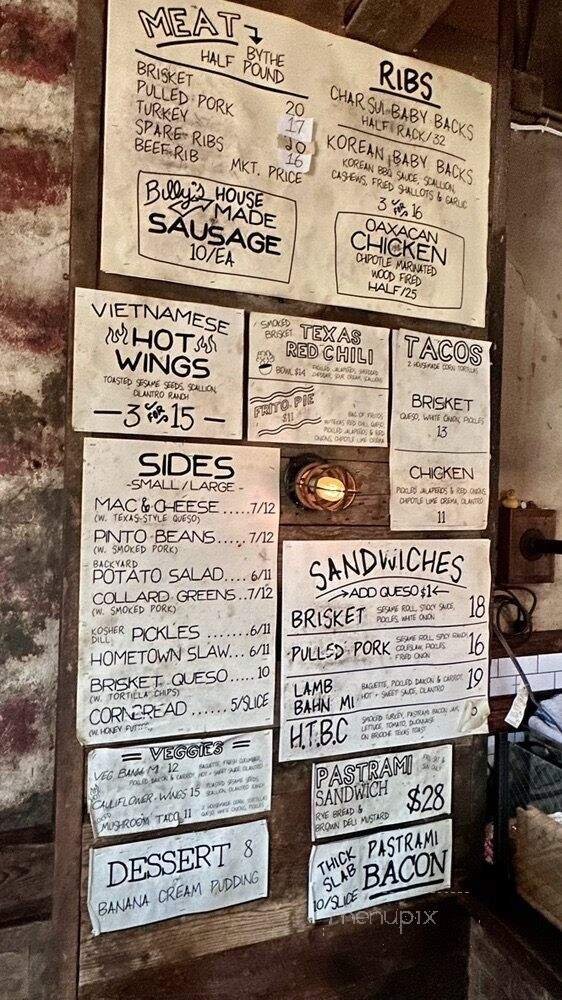 MEAT
BY THE
HALF POUND
BRISKET 20
PULLED PORK 17
TURKEY 20
SPARE RIBS 16
BEEF RIB MKT. PRICE
Billy's HOUSE
MADE
SAUSAGE
10/EA
RIBS
CHAR SUI BABY BACKS
HALF RACK/32
KOREAN BABY BACKS
KOREAN BBQ SAUCE, SCALLION,
CASHEWS, FRIED SHALLOTS & GARLIC
3 FOR 16
OAXACAN
CHICKEN
CHIPOTLE MARINATED
WOOD FIRED
HALF/25
VIETNAMESE
HOT
WINGS
TOASTED SESAME SEEDS, SCALLION,
CILANTRO RANCH
— 3 FOR 15 —
SMOKED
BRISKET
TEXAS
RED CHILI
BOWL $14
PICKLED JALAPEÑOS, SHREDDED
CHEDDAR, SOUR CREAM, SCALLIONS
FRITO PIE
$11
BAG OF FRITOS
W/TEXAS RED CHILI, QUESO,
PICKLED JALAPEÑOS & RED
ONIONS, CHIPOTLE LIME CREMA
TACOS
2 HOUSEMADE CORN TORTILLAS
BRISKET
QUESO, WHITE ONION, PICKLES
13
CHICKEN
PICKLED JALAPEÑOS & RED ONIONS,
CHIPOTLE LIME CREMA, CILANTRO
11
SIDES
-SMALL/LARGE-
MAC & CHEESE.....7/12
(W. TEXAS-STYLE QUESO)
PINTO BEANS.....7/12
(W. SMOKED PORK)
BACKYARD
POTATO SALAD....6/11
COLLARD GREENS..7/12
(W. SMOKED PORK)
KOSHER
DILL PICKLES.......6/11
HOMETOWN SLAW...6/11
BRISKET QUESO.....10
(W. TORTILLA CHIPS)
CORNBREAD......5/SLICE
(W. HONEY BUTTER)
SANDWICHES
→ADD QUESO $1←
BRISKET SESAME ROLL, STICKY SAUCE,
PICKLES, WHITE ONION 18
PULLED PORK SESAME ROLL, SPICY
COLESLAW, PICKLES,
FRIED ONION 16
LAMB
BAHN MI BAGUETTE, PICKLED DAIKON & CARROT,
HOT + SWEET SAUCE, CILANTRO 19
H.T.B.C SMOKED TURKEY, PASTRAMI BACON JAM,
LETTUCE, TOMATO, DIJONNAISE
ON BRIOCHE TEXAS TOAST
= VEGGIES =
VEG BAHN MI 12 BAGUETTE, FRESH CUCUMBER,
PICKLED DAIKON & CARROT, HOT + SWEET SAUCE, CILANTRO
CAULIFLOWER WINGS 15 TOASTED SESAME SEEDS,
SCALLION, CILANTRO RANCH
MUSHROOM TACO 11 2 HOUSEMADE CORN TORTILLAS
QUESO, WHITE ONIONS, PICKLES
PASTRAMI
SANDWICH
RYE BREAD &
BROWN DELI MUSTARD
$28
DESSERT 8
BANANA CREAM PUDDING
THICK
SLAB
10/SLICE
PASTRAMI
BACON
menupix